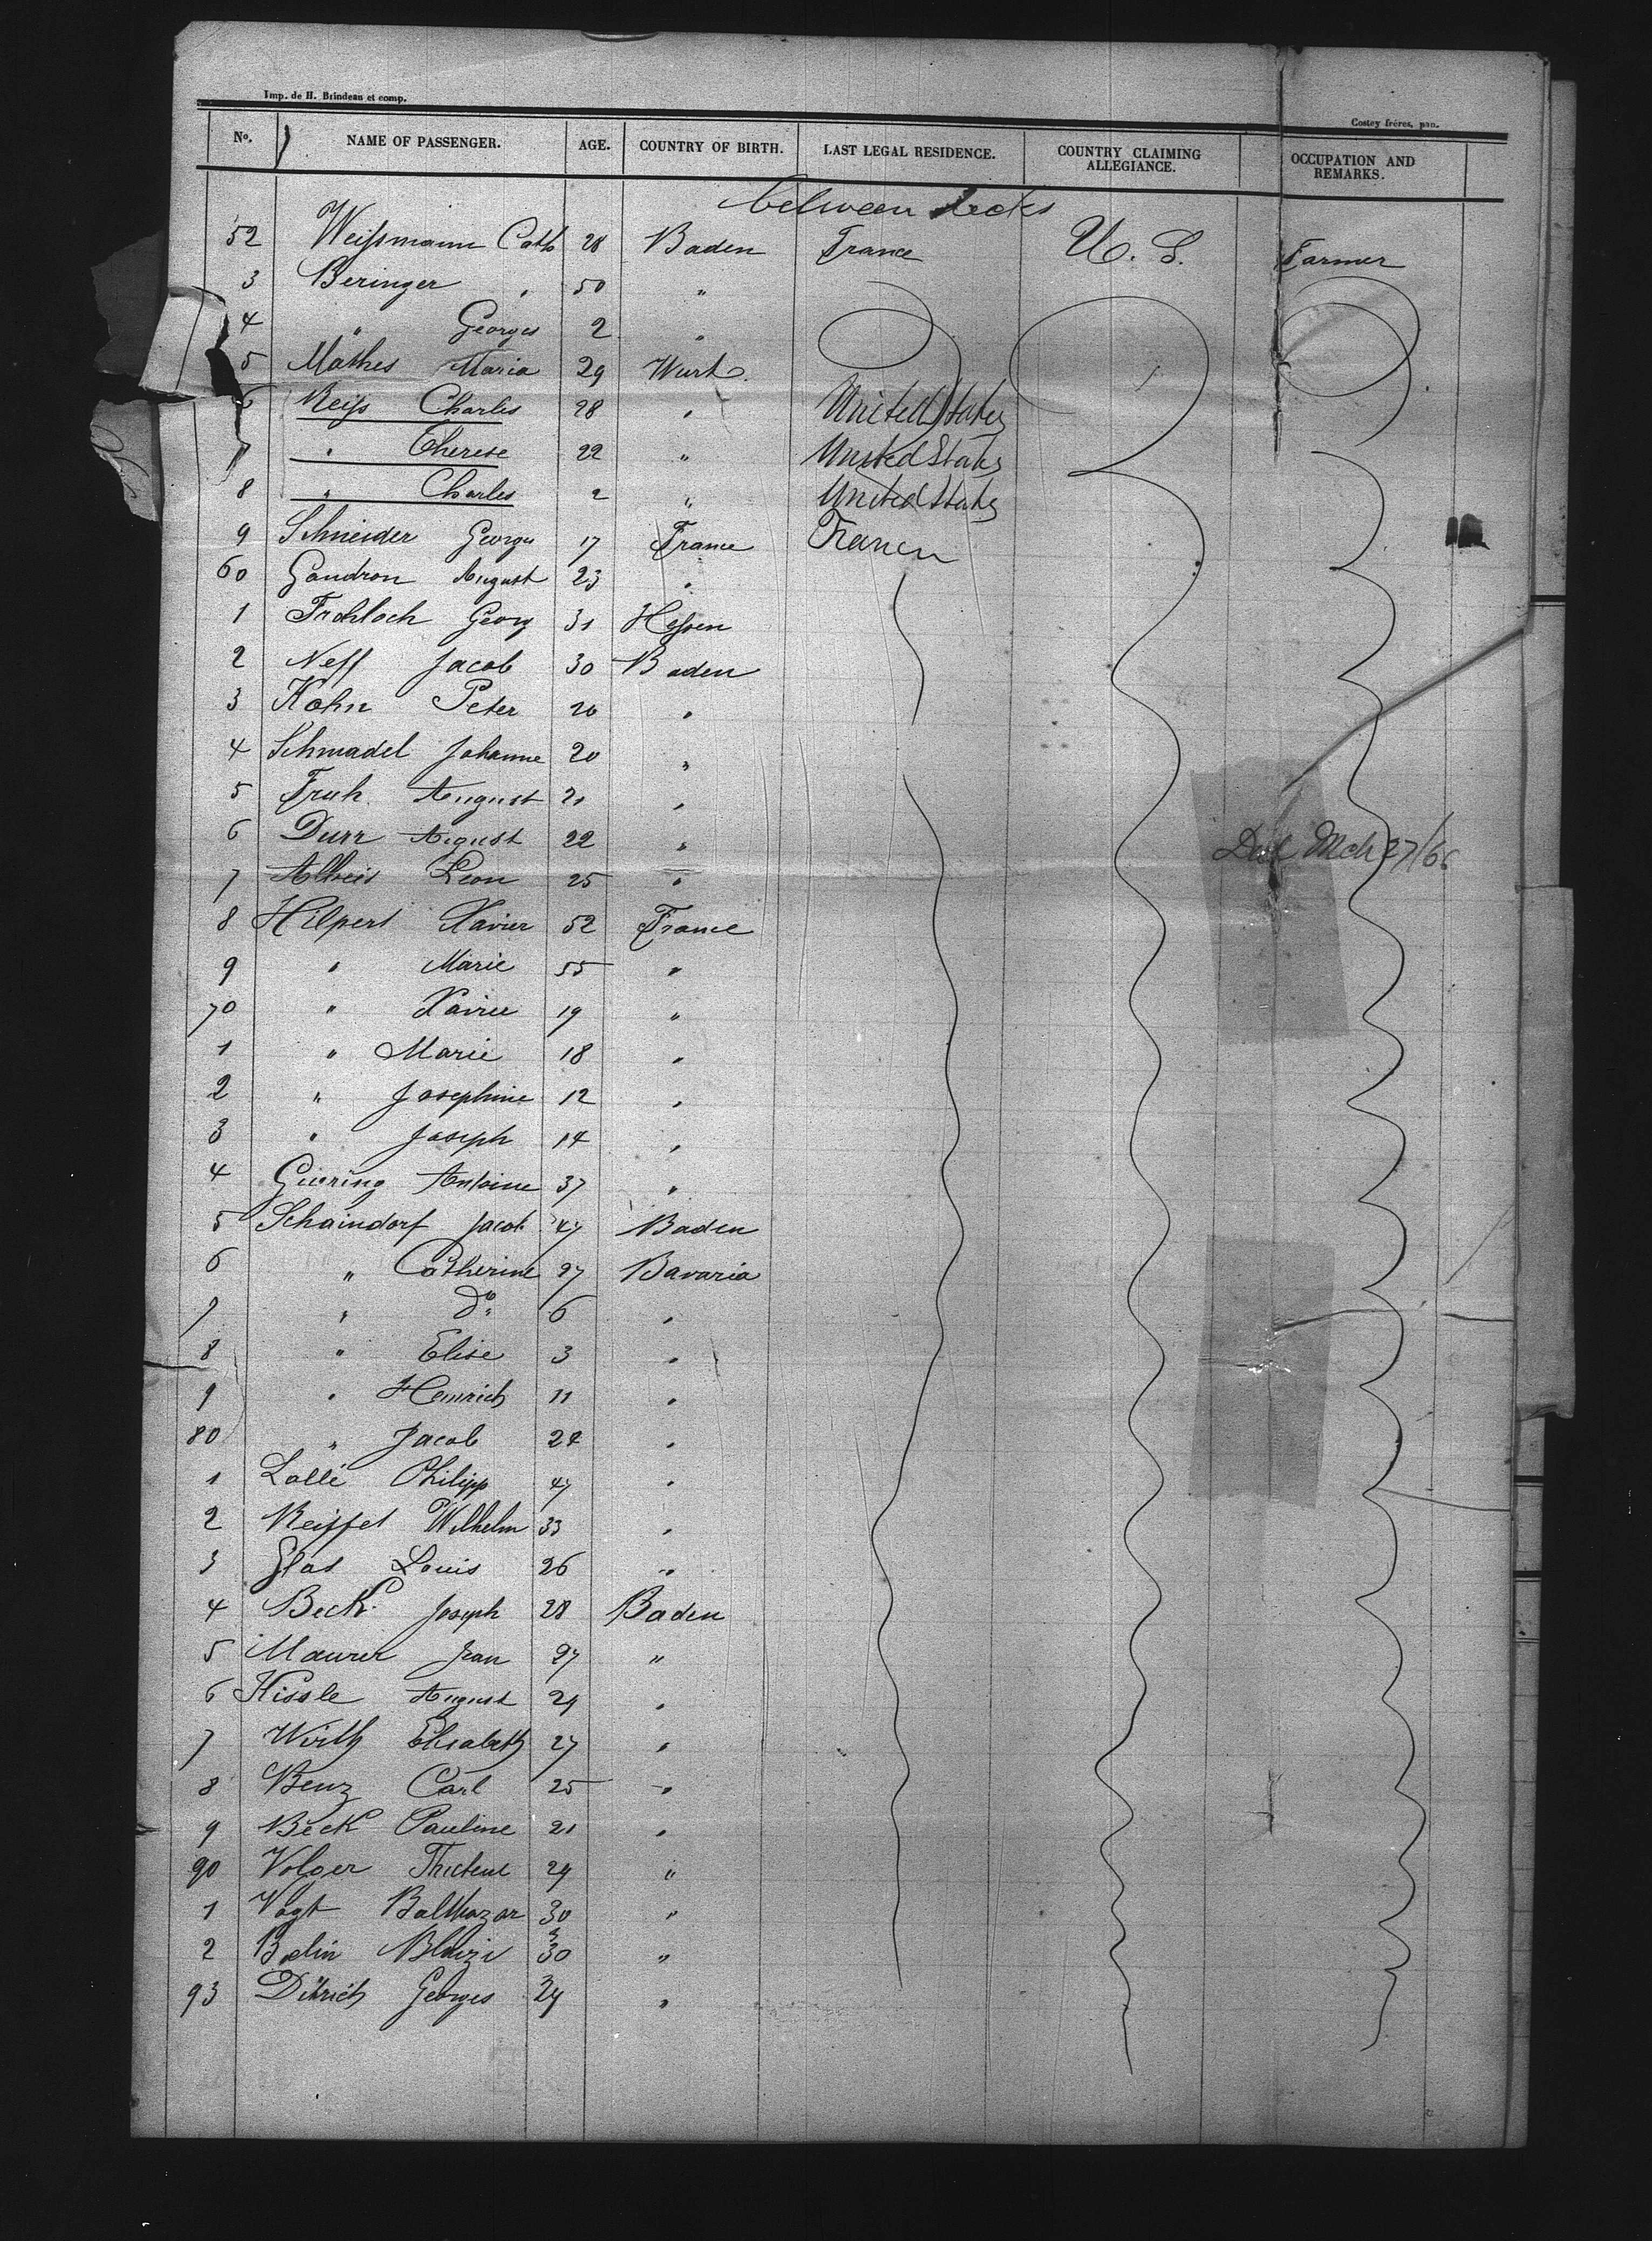 Imp. de H. Brindeau et comp.
Costey frères, pan.
No. NAME OF PASSENGER. AGE. COUNTRY OF BIRTH. LAST LEGAL RESIDENCE. COUNTRY CLAIMING ALLEGIANCE. OCCUPATION AND REMARKS.
between decks
52 Weißmann Cath 28 Baden France U. S. Farmer
3 Beringer " 50 "
4 " Georges 2 "
5 Mathes Maria 29 Wurt.
6 Reiß Charles 28 " United States
7 " Therese 22 " United States
8 " Charles 2 " United States
9 Schneider George 17 France France
60 Gandron August 23 "
1 Frohloch Georg 31 Heßen
2 Neff Jacob 30 Baden
3 Kohn Peter 26 "
4 Schmadel Johanne 20 "
5 Fruh August 21 "
6 Durr August 22 "
Due Mch 27/66
7 Leon 25 "
8 Hilpert Xavier 52 France
9 " Marie 55 "
70 " Xavier 19 "
1 " Marie 18 "
2 " Josephine 12 "
3 " Joseph 14 "
4 Guering Antoine 37 "
5 Schaindorf Jacob 47 Baden
6 " Catherine 27 Bavaria
7 " Do 6 "
8 " Elise 3 "
9 " Heinrich 11 "
80 " Jacob 24 "
1 Lallé Philipp 47 "
2 Reiffel Wilhelm 33 "
3 Glas Louis 26 "
4 Beck Joseph 28 Baden
5 Maurer Jean 27 "
6 Kissle August 24 "
7 Wirth Elisabeth 27 "
8 Benz Carl 25 "
9 Beck Pauline 21 "
90 Volger 24 "
1 Vogt Balthazar 30 "
2 Belin Blaizi 30 "
93 Ditrich Georges 24 "